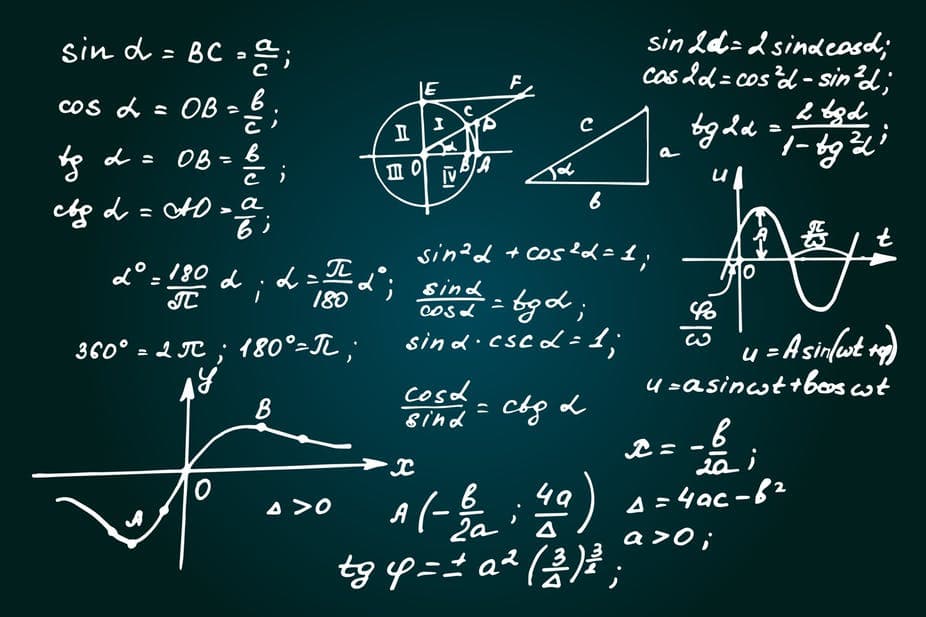 sin α = BC = a/c ;
cos α = OB = b/c ;
tg α = OB = b/c ;
ctg α = AD = a/b ;
E F
II I C D
α
III O IV B A
c a
α
b
sin 2α = 2 sin α cos α;
cos 2α = cos²α - sin²α;
tg 2α = 2 tg α / 1 - tg²α ;
u
A π/ω t
O
φ₀/ω
u = A sin(ωt + φ)
u = a sin ωt + b cos ωt
α° = 180/π α ; α = π/180 α° ;
360° = 2π ; 180° = π ;
sin²α + cos²α = 1 ;
sin α / cos α = tg α ;
sin α · csc α = 1 ;
cos α / sin α = ctg α
y
B
x
O
A
Δ > 0
x = - b/2a ;
A (- b/2a ; 4a/Δ) Δ = 4ac - b²
a > 0 ;
tg φ = ± a² (3/Δ)^3/2 ;